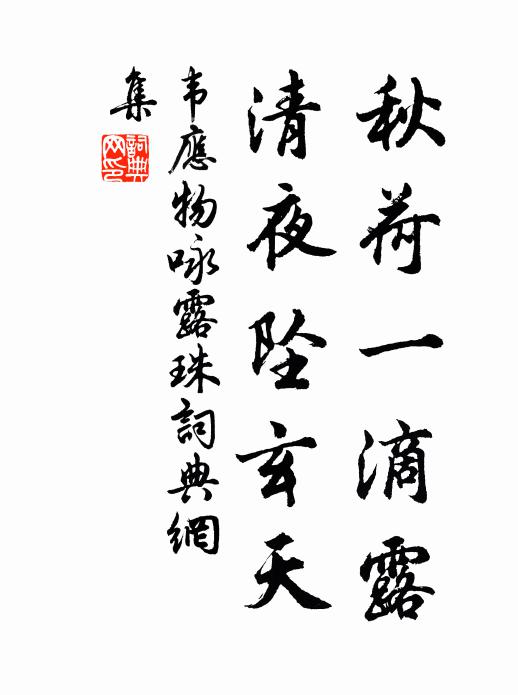 秋荷一滴露
清夜坠玄天
韦應物咏露珠詞典網
集
詞典
网印